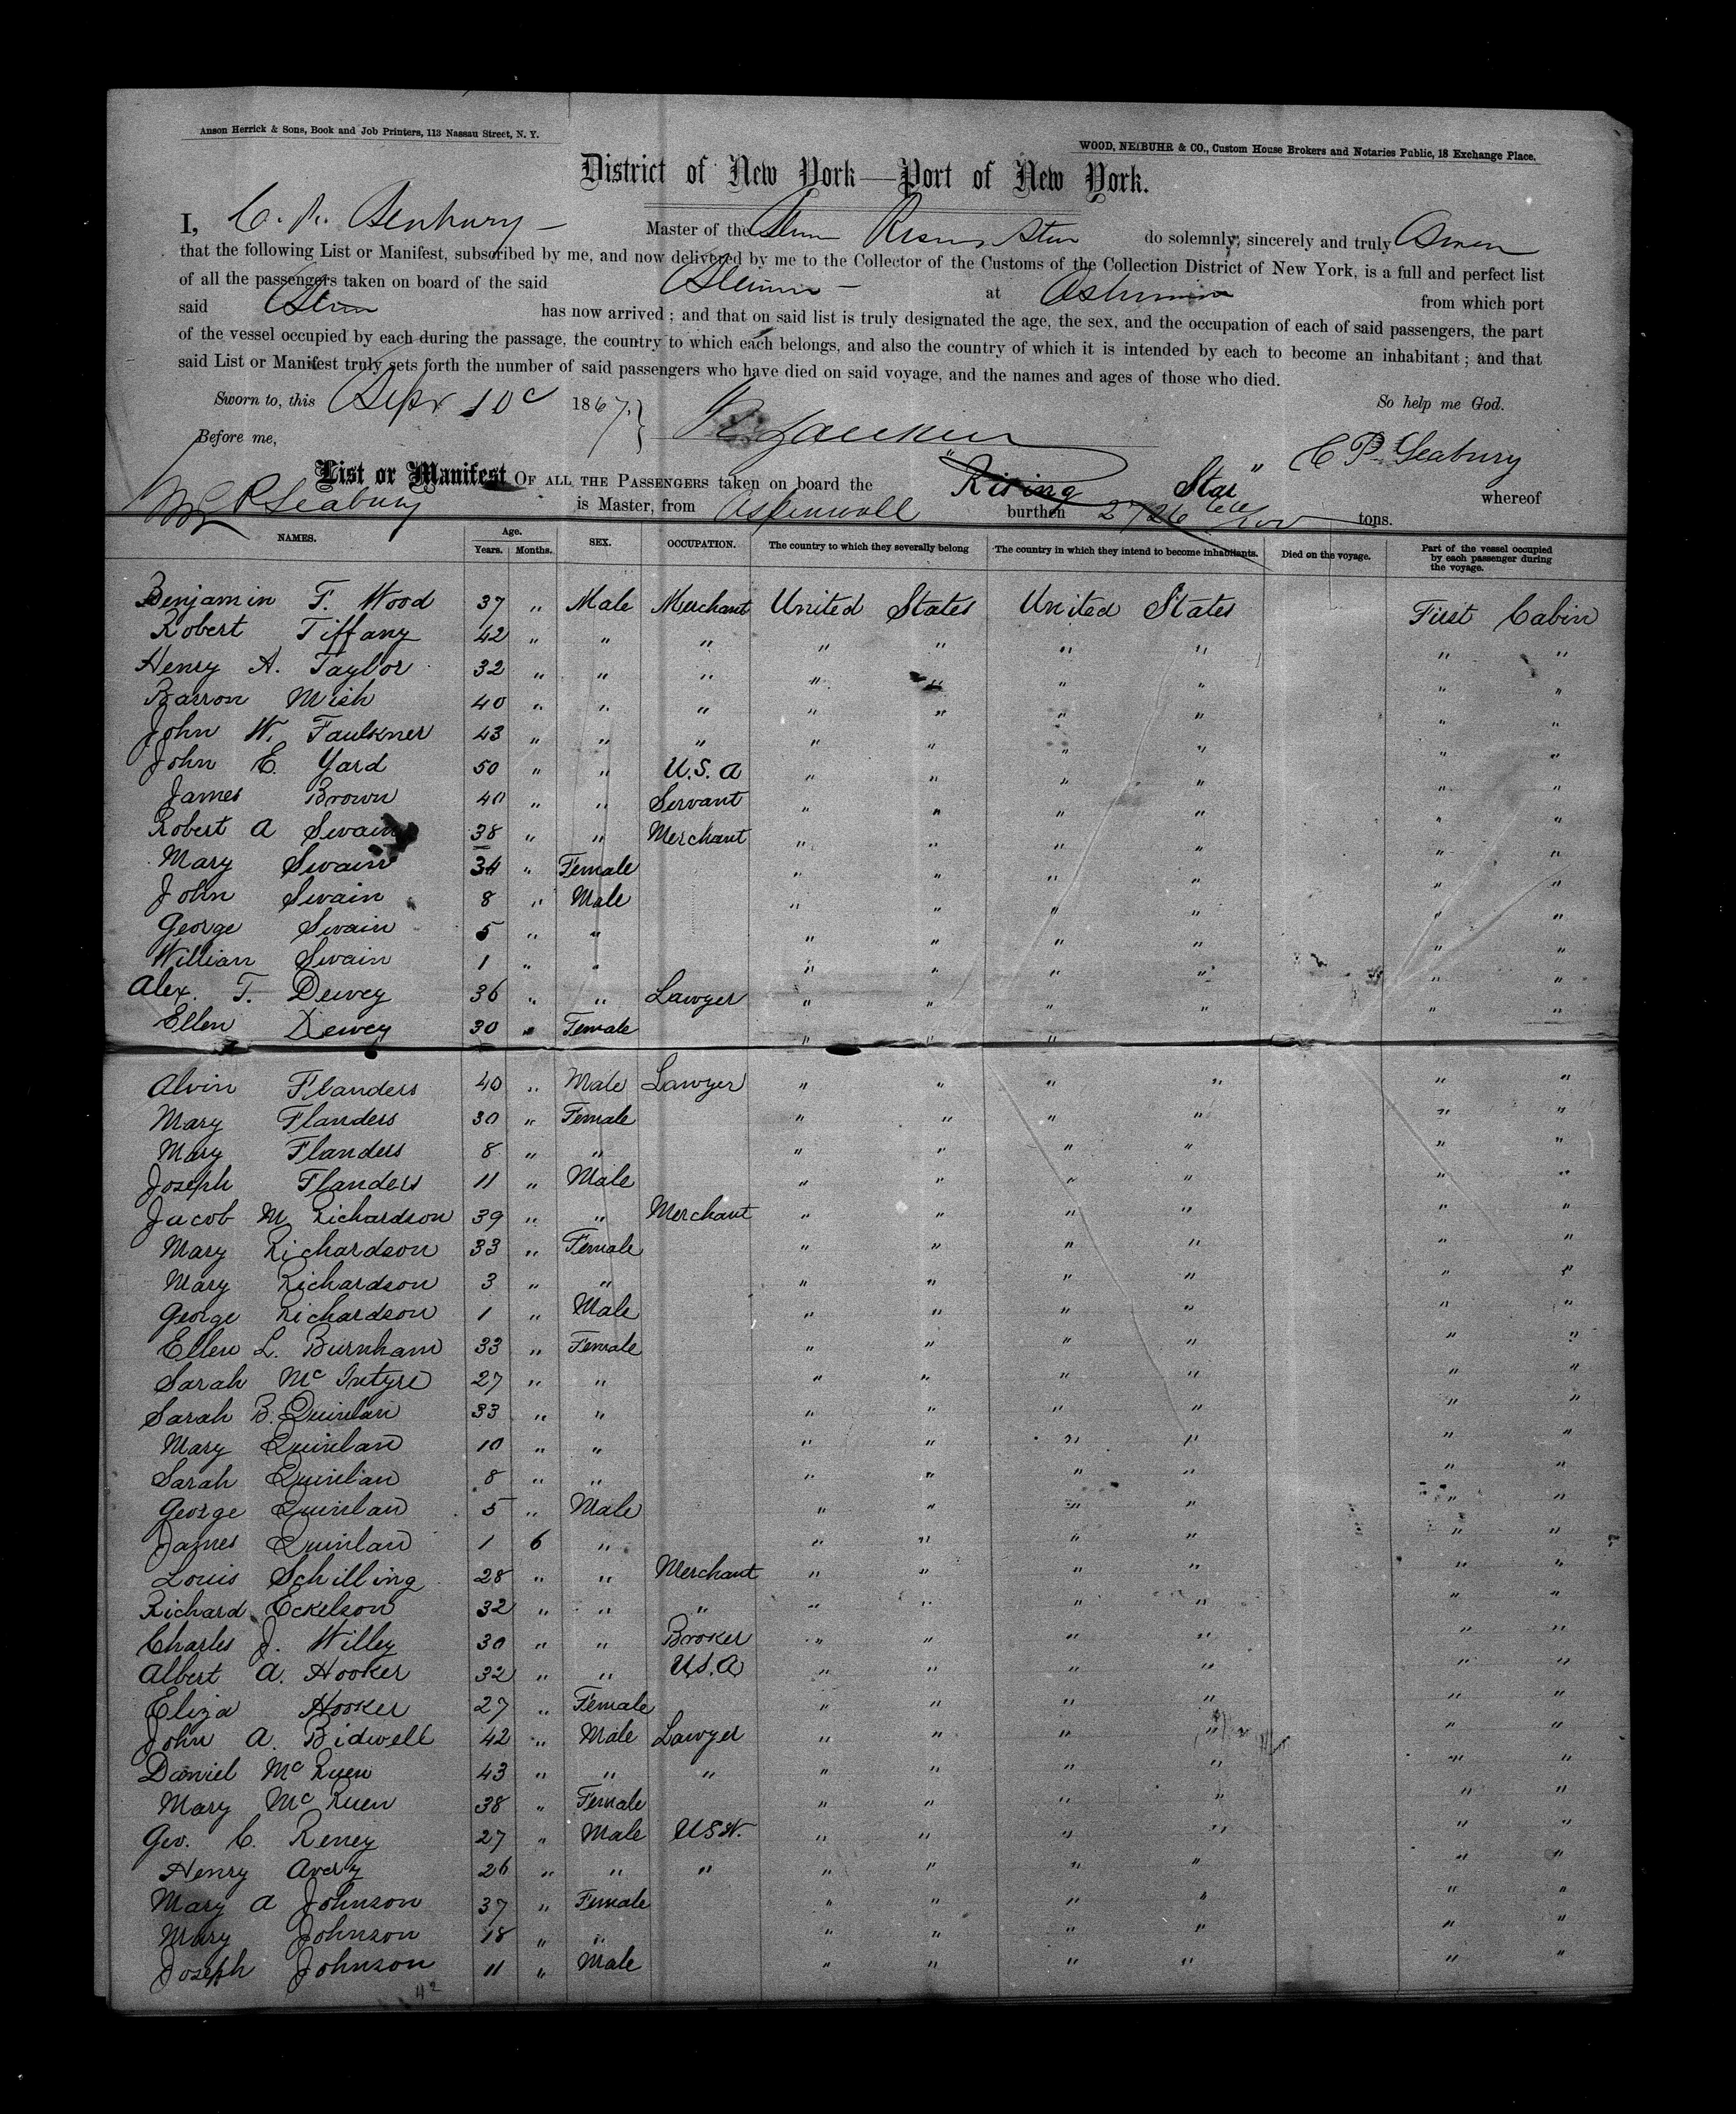 Anson Herrick & Sons, Book and Job Printers, 113 Nassau Street, N. Y.
WOOD, NEIBUHR & CO., Custom House Brokers and Notaries Public, 18 Exchange Place.
District of New York—Port of New York.
I, C. P. Seabury — Master of the Rising Star do solemnly, sincerely and truly Swear
that the following List or Manifest, subscribed by me, and now delivered by me to the Collector of the Customs of the Collection District of New York, is a full and perfect list
of all the passengers taken on board of the said Steamer — at Aspinwall from which port
said has now arrived; and that on said list is truly designated the age, the sex, and the occupation of each of said passengers, the part
of the vessel occupied by each during the passage, the country to which each belongs, and also the country of which it is intended by each to become an inhabitant; and that
said List or Manifest truly sets forth the number of said passengers who have died on said voyage, and the names and ages of those who died.
Sworn to, this Sept 10 1867, So help me God.
Before me, C P Seabury
List or Manifest OF ALL THE PASSENGERS taken on board the "Rising Star" whereof
C P Seabury is Master, from Aspinwall burthen 2726 tons.
NAMES. Age. Years. Months. SEX. OCCUPATION. The country to which they severally belong The country in which they intend to become inhabitants. Died on the voyage. Part of the vessel occupied by each passenger during the voyage.
Benjamin F. Wood 37 " Male Merchant United States United States First Cabin
Robert Tiffany 42 " " " " " " " " "
Henry A. Taylor 32 " " " " " " " " "
Barron Mish 40 " " " " " " " " "
John W. Faulkner 43 " " " " " " " " "
John E. Yard 50 " " U.S.A " " " " " "
James Brown 40 " " Servant " " " " " "
Robert A Swain 38 " " Merchant " " " " " "
Mary Swain 34 " Female " " " " " "
John Swain 8 " Male " " " " " "
George Swain 5 " " " " " " " "
Willian Swain 1 " " " " " " " "
Alex. T. Dewey 36 " " Lawyer " " " " " "
Ellen Dewey 30 " Female " " "
Alvin Flanders 40 " Male Lawyer " " " " " "
Mary Flanders 30 " Female " " " " " "
Mary Flanders 8 " " " " " " " "
Joseph Flanders 11 " Male " " " " " "
Jacob M Richardson 39 " " Merchant " " " " " "
Mary Richardson 33 " Female " " " " " "
Mary Richardson 3 " " " " " " " "
George Richardson 1 " Male " " " " " "
Ellen L. Burnham 33 " Female " " " " " "
Sarah McIntyre 27 " " " " " " " "
Sarah B. Quinlan 33 " " " " " " " "
Mary Quinlan 10 " " " " " " " "
Sarah Quinlan 8 " " " " " " " "
George Quinlan 5 " Male " " " " " "
James Quinlan 1 6 " " " " " " "
Louis Schilling 28 " " Merchant " " " " " "
Richard Eckelson 32 " " " " " " " " "
Charles J. Willey 30 " " Broker " " " " " "
Albert A. Hooker 32 " " U.S.A " " " " " "
Eliza Hooker 27 " Female " " " " " "
John A. Bidwell 42 " Male Lawyer " " " " " "
Daniel McRuen 43 " " " " " " " " "
Mary McRuen 38 " Female " " " " " "
Geo. C. Remey 27 " Male USN. " " " " " "
Henry Avery 26 " " " " " " " " "
Mary A Johnson 37 " Female " " " " " "
Mary Johnson 18 " " " " " " " "
Joseph Johnson 11 " Male " " " " " "
42